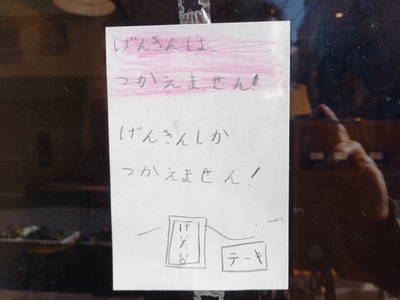 げんきんは、
つかえません!
げんきんしか
つかえません!
げいたい
テーキ